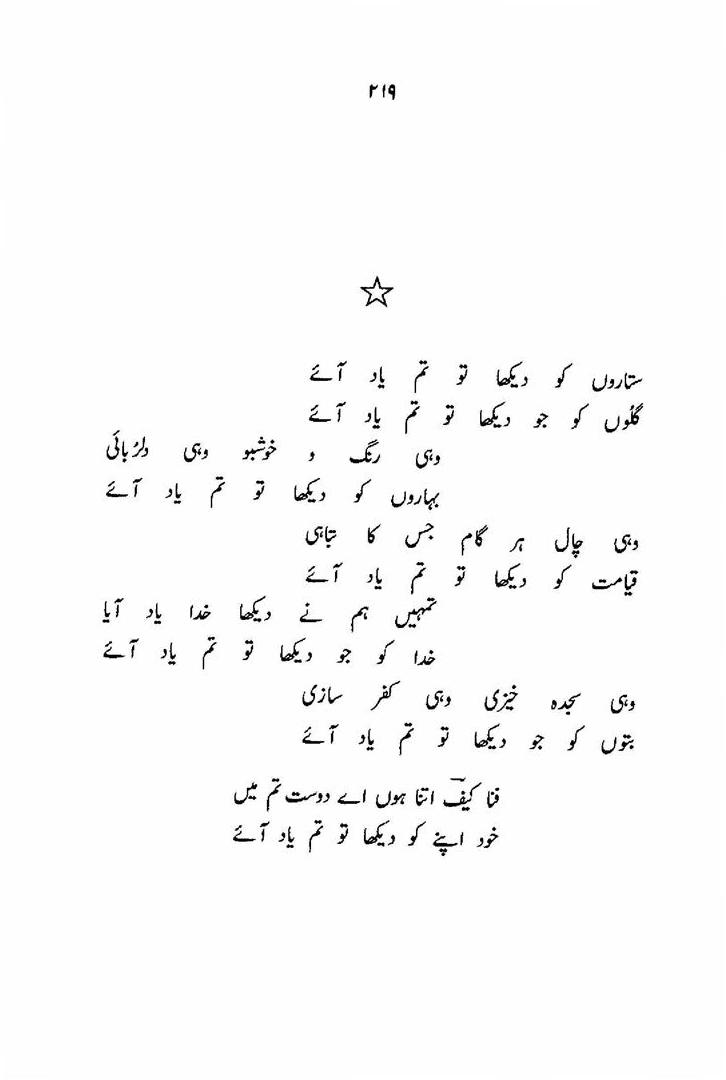 ۲۱۹
ستاروں کو دیکھا تو تم یاد آئے
گلُوں کو جو دیکھا تو تم یاد آئے
وہی رنگ و خوشبو وہی دلرُبائی
بہاروں کو دیکھا تو تم یاد آئے
وہی چال ہر گام جس کا تباہی
قیامت کو دیکھا تو تم یاد آئے
تمہیں ہم نے دیکھا خدا یاد آیا
خدا کو جو دیکھا تو تم یاد آئے
وہی سجدہ خیزی وہی کفر سازی
بتوں کو جو دیکھا تو تم یاد آئے
فنا کیفؔ اتنا ہوں اے دوست تم میں
خود اپنے کو دیکھا تو تم یاد آئے